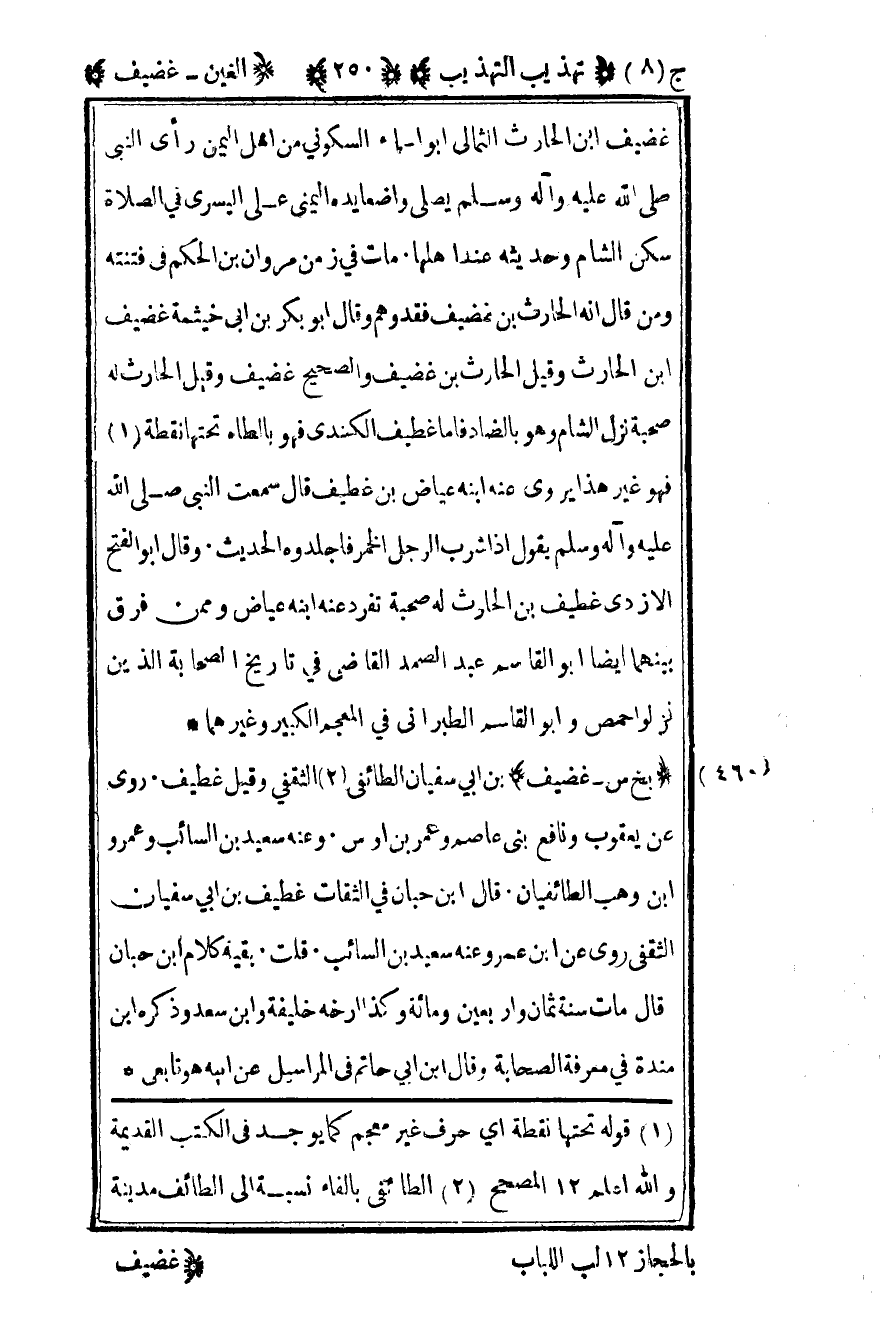 ج (٨) ﴿ تهذيب التهذيب ﴾ ﴿ ٢٥٠ ﴾ ﴿ الغين - غضيف ﴾
غضيف ابن الحارث الثمالى ابو اسماء السكوني من اهل اليمن رأى النبى
صلى الله عليه وآله وسلم يصلى واضعا يده اليمنى على اليسرى في الصلاة
سكن الشام وحديثه عند اهلها . مات في زمن مروان بن الحكم فى فتنته
ومن قال انه الحارث بن غضيف فقد وهم وقال ابو بكر بن ابى خيثمة غضيف
ابن الحارث وقيل الحارث بن غضيف والصحيح غضيف وقيل الحارث له
صحبة نزل الشام وهو بالضاد فاما غطيف الكندى فهو بالطاء تحتها نقطة (١)
فهو غير هذا يروى عنه ابنه عياض بن غطيف قال سمعت النبى صلى الله
عليه وآله وسلم يقول اذا شرب الرجل الخمر فاجلدوه الحديث . وقال ابو الفتح
الازدى غطيف بن الحارث له صحبة تفرد عنه ابنه عياض وممن فرق
بينهما ايضا ابو القاسم عبد الصمد القاضى في تاريخ الصحابة الذين
نزلوا حمص و ابو القاسم الطبرانى في المعجم الكبير وغيرهما *
(٤٦٠) ﴿ بخ س - غضيف ﴾ بن ابي سفيان الطائفى (٢) الثقفي وقيل غطيف . روى
عن يعقوب ونافع بنى عاصم وعمر بن اوس . وعنه سعيد بن السائب وعمرو
ابن وهب الطائفيان . قال ابن حبان في الثقات غطيف بن ابي سفيان
الثقفى روى عن ابن عمر وعنه سعيد بن السائب . قلت . بقية كلام ابن حبان
قال مات سنة ثمان واربعين ومائة وكذا ارخه خليفة وابن سعد وذكره ابن
مندة في معرفة الصحابة وقال ابن ابي حاتم فى المراسيل عن ابيه هو تابعى *
(١) قوله تحتها نقطة اي حرف غير معجم كما يوجد فى الكتب القديمة
و الله اعلم ١٢ المصحح (٢) الطائفى بالفاء نسبة الى الطائف مدينة
بالحجاز ١٢ لب اللباب ﴿ غضيف